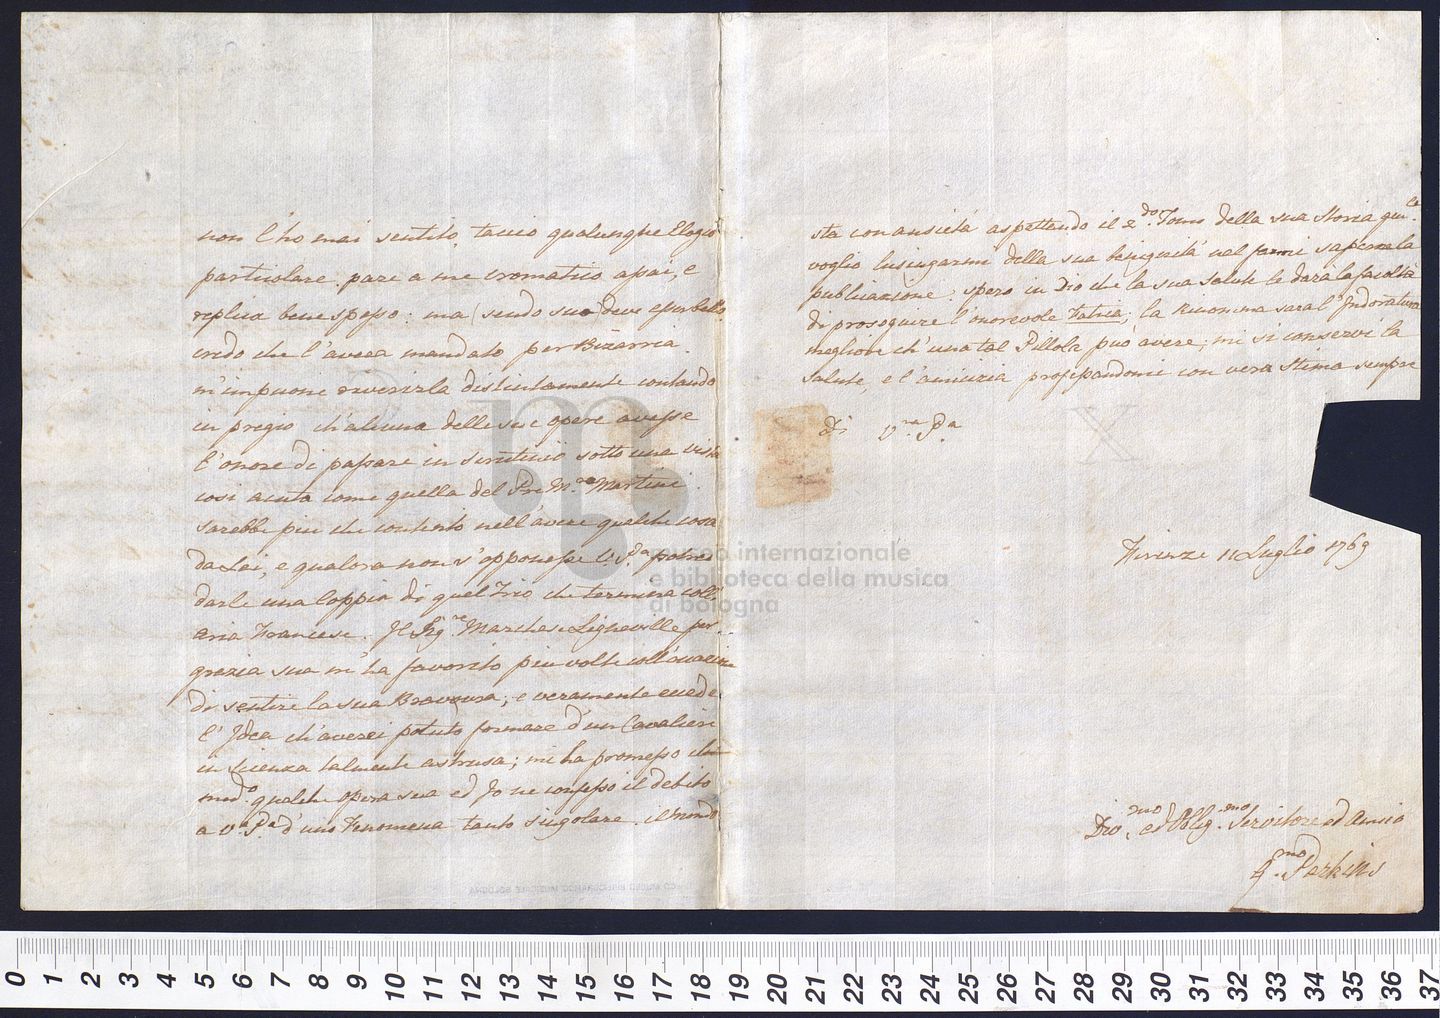 non l'ho mai sentito, taccio qualunque Elogio
particolare. pare a me cromatico assai, e
replica bene spesso. ma (sendo suo) deve esser bello
credo che l'avea mandato per Bizarria.
m'impuone reverirla distintamente contando
in pregio ch'alcuna delle sue opere avesse
l'onore di passare in scrutinio sotto una vista
cosi acuta come quella del Pre M.ro Martini.
sarebbe piu che contento nell'avere qualche cosa
da Lei, e qualora non s'opponesse V. P.a potrei
darle una Coppia di quel Trio che termina coll'
aria Francese. Il Sig.re Marchese Ligneville per
grazia sua m'ha favorito piu volte coll'
di sentire la sua Bravoura; e veramente eccede
l'Idea ch'averei potuto formare d'un Cavaliere
in scienza talmente astrusa; mi ha promesso
mod.o qualche opera sua ed Io ne confesso il debito
a V.a P.a d'uno Fenomena tanto singolare. il mondo
sta con ansietà aspettando il 2.do Tomo della sua Storia
voglio lusingarmi della sua benignità nel farmi sapere la
publicazione. spero in Dio che la sua Salute le darà la facoltà
di proseguire l'onorevole Fatica; la Rinonma sarà l'Indoratura
megliore ch'una tal Pillola può avere; mi si conservi la
salute, e l'amicizia professandomi con vera Stima sempre
Di V.ra P.a
Firenze 11 Luglio 1769
Div.mo ed Obblig.mo Servitore ed Amico
Parkins
museo internazionale
e biblioteca della musica
di bologna
0 1 2 3 4 5 6 7 8 9 10 11 12 13 14 15 16 17 18 19 20 21 22 23 24 25 26 27 28 29 30 31 32 33 34 35 36 37